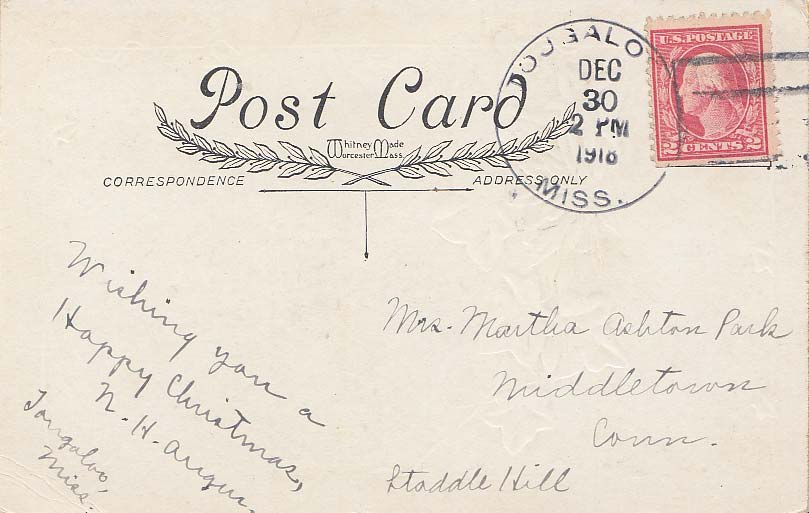 Post Card
Whitney Made
Worcester Mass
CORRESPONDENCE
ADDRESS ONLY
TOUGALOO
DEC
30
2 PM
1918
MISS.
U.S. POSTAGE
2 CENTS 2
Wishing you a
Happy Christmas,
N. H. Angus.
Tougaloo,
Miss.
Mrs. Martha Ashton Park
Middletown
Conn.
Staddle Hill